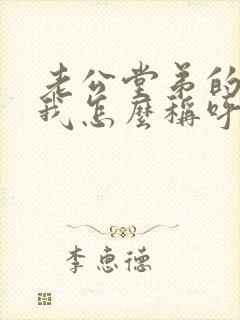 老公堂弟的
我怎麼稱呼
李惠德